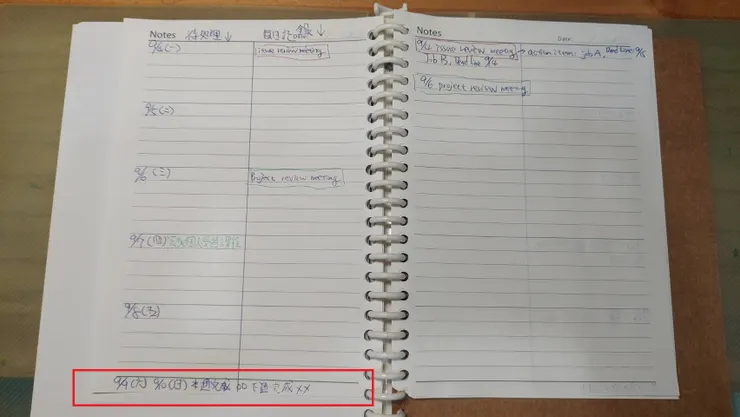 Notes 待處理↓ 每日記錄↓
9/4 (一) issue review meeting
9/5 (二)
9/6 (三) Project review meeting
9/7 (四)
9/8 (五)
9/4 (六) 9/0 (日) 本週完成 OO 下週完成 XX
Notes
Date
9/4 issue review meeting → action item: job A, dead line 9/5
Job B, dead line 9/4
9/6 project review meeting